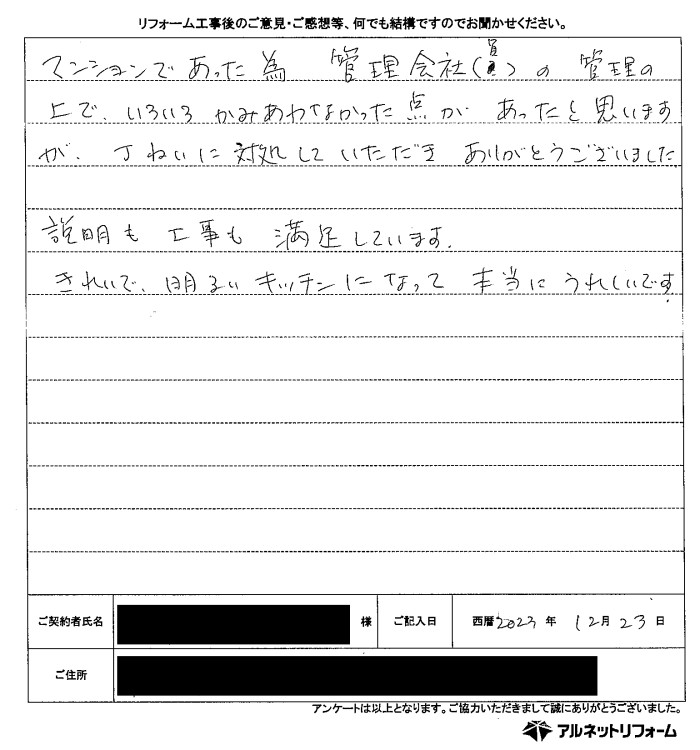 リフォーム工事後のご意見・ご感想等、何でも結構ですのでお聞かせください。
マンションであった為 管理会社(員)の 管理の
上で、いろいろ かみあわなかった点が あったと思います
が、丁ねいに対処していただき ありがとうございました
説明も 工事も 満足しています。
きれいで、明るいキッチンになって 本当に うれしいです。
ご契約者氏名 様 ご記入日 西暦2023年 12月23日
ご住所
アンケートは以上となります。ご協力いただきまして誠にありがとうございました。
アルネットリフォーム